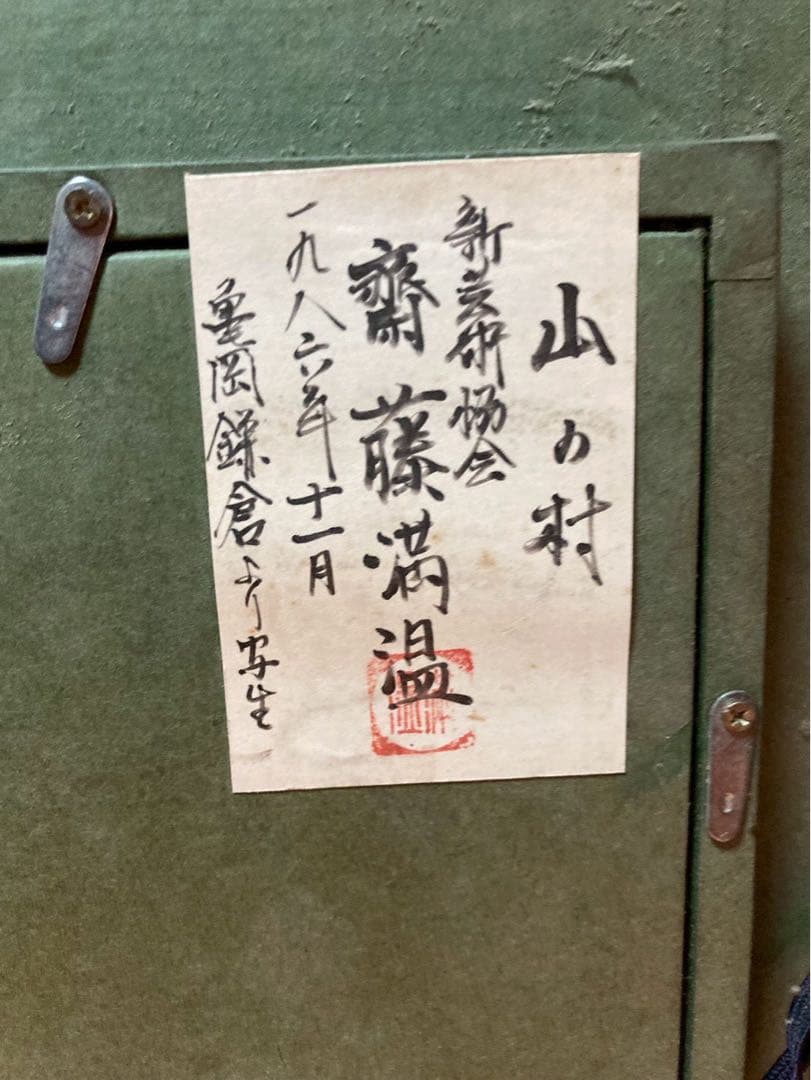 山の村
新芸術協会
齋藤満温
一九八六年十一月
亀岡鎌倉より写生